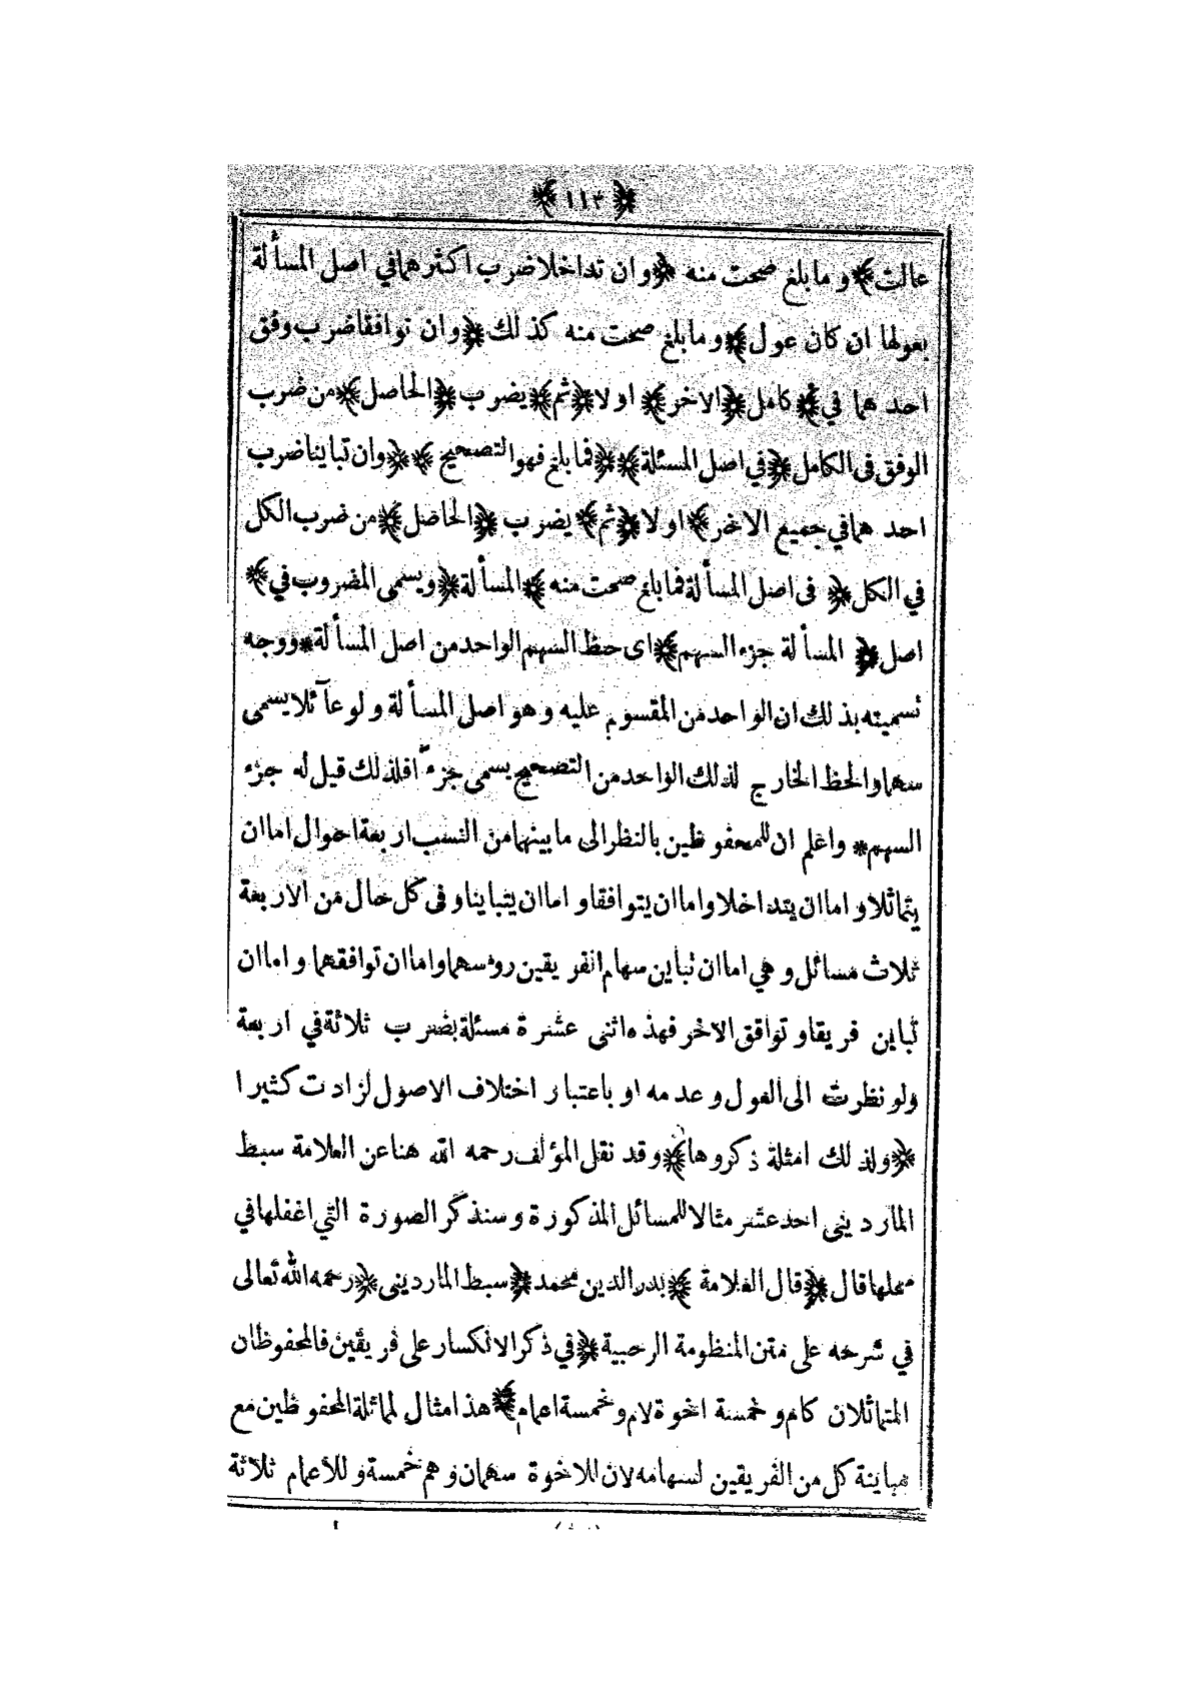 ﴿١١٣﴾
عالت﴾ وما بلغ صحت منه ﴿وان تداخلا ضرب اكثرهما في اصل المسألة
بعولها ان كان عول﴾ وما بلغ صحت منه كذلك ﴿وان توافقا ضرب وفق
احدهما في﴾ كامل ﴿الاخر﴾ اولا ﴿ثم﴾ يضرب ﴿الحاصل﴾ من ضرب
الوفق في الكامل ﴿في اصل المسئلة﴾ ﴿فما بلغ فهو التصحيح﴾ ﴿وان تباينا ضرب
احدهما في جميع الاخر﴾ اولا ﴿ثم﴾ يضرب ﴿الحاصل﴾ من ضرب الكل
في الكل ﴿في اصل المسألة فما بلغ صحت منه﴾ المسألة ﴿ويسمى المضروب في﴾
اصل ﴿المسألة جزء السهم﴾ اى حظ السهم الواحد من اصل المسألة * ووجه
تسميته بذلك ان الواحد من المقسوم عليه وهو اصل المسألة ولو عآئلا يسمى
سهما والحظ الخارج لذلك الواحد من التصحيح يسمى جزءًا فلذلك قيل له جزء
السهم * واعلم ان للمحفوظين بالنظر الى ما بينهما من النسب اربعة احوال اما ان
يتماثلا واما ان يتداخلا واما ان يتوافقا واما ان يتباينا وفى كل حال من الاربعة
ثلاث مسائل وهي اما ان تباين سهام الفريقين روسهما واما ان توافقهما واما ان
تباين فريقا وتوافق الاخر فهذه اثنى عشرة مسئلة بضرب ثلاثة في اربعة
ولو نظرت الى العول وعدمه او باعتبار اختلاف الاصول لزادت كثيرا
﴿ولذلك امثلة ذكروها﴾ وقد نقل المؤلف رحمه الله هنا عن العلامة سبط
الماردينى احد عشر مثالا للمسائل المذكورة وسنذكر الصورة التي اغفلها في
محلها قال ﴿قال العلامة﴾ بدر الدين محمد ﴿سبط الماردينى﴾ رحمه الله تعالى
في شرحه على متن المنظومة الرحبية ﴿في ذكر الانكسار على فريقين فالمحفوظان
المتماثلان كام وخمسة اخوة لام وخمسة اعمام﴾ هذا مثال لمماثلة المحفوظين مع
مباينة كل من الفريقين لسهامه لان للاخوة سهمان وهم خمسة وللاعمام ثلاثة